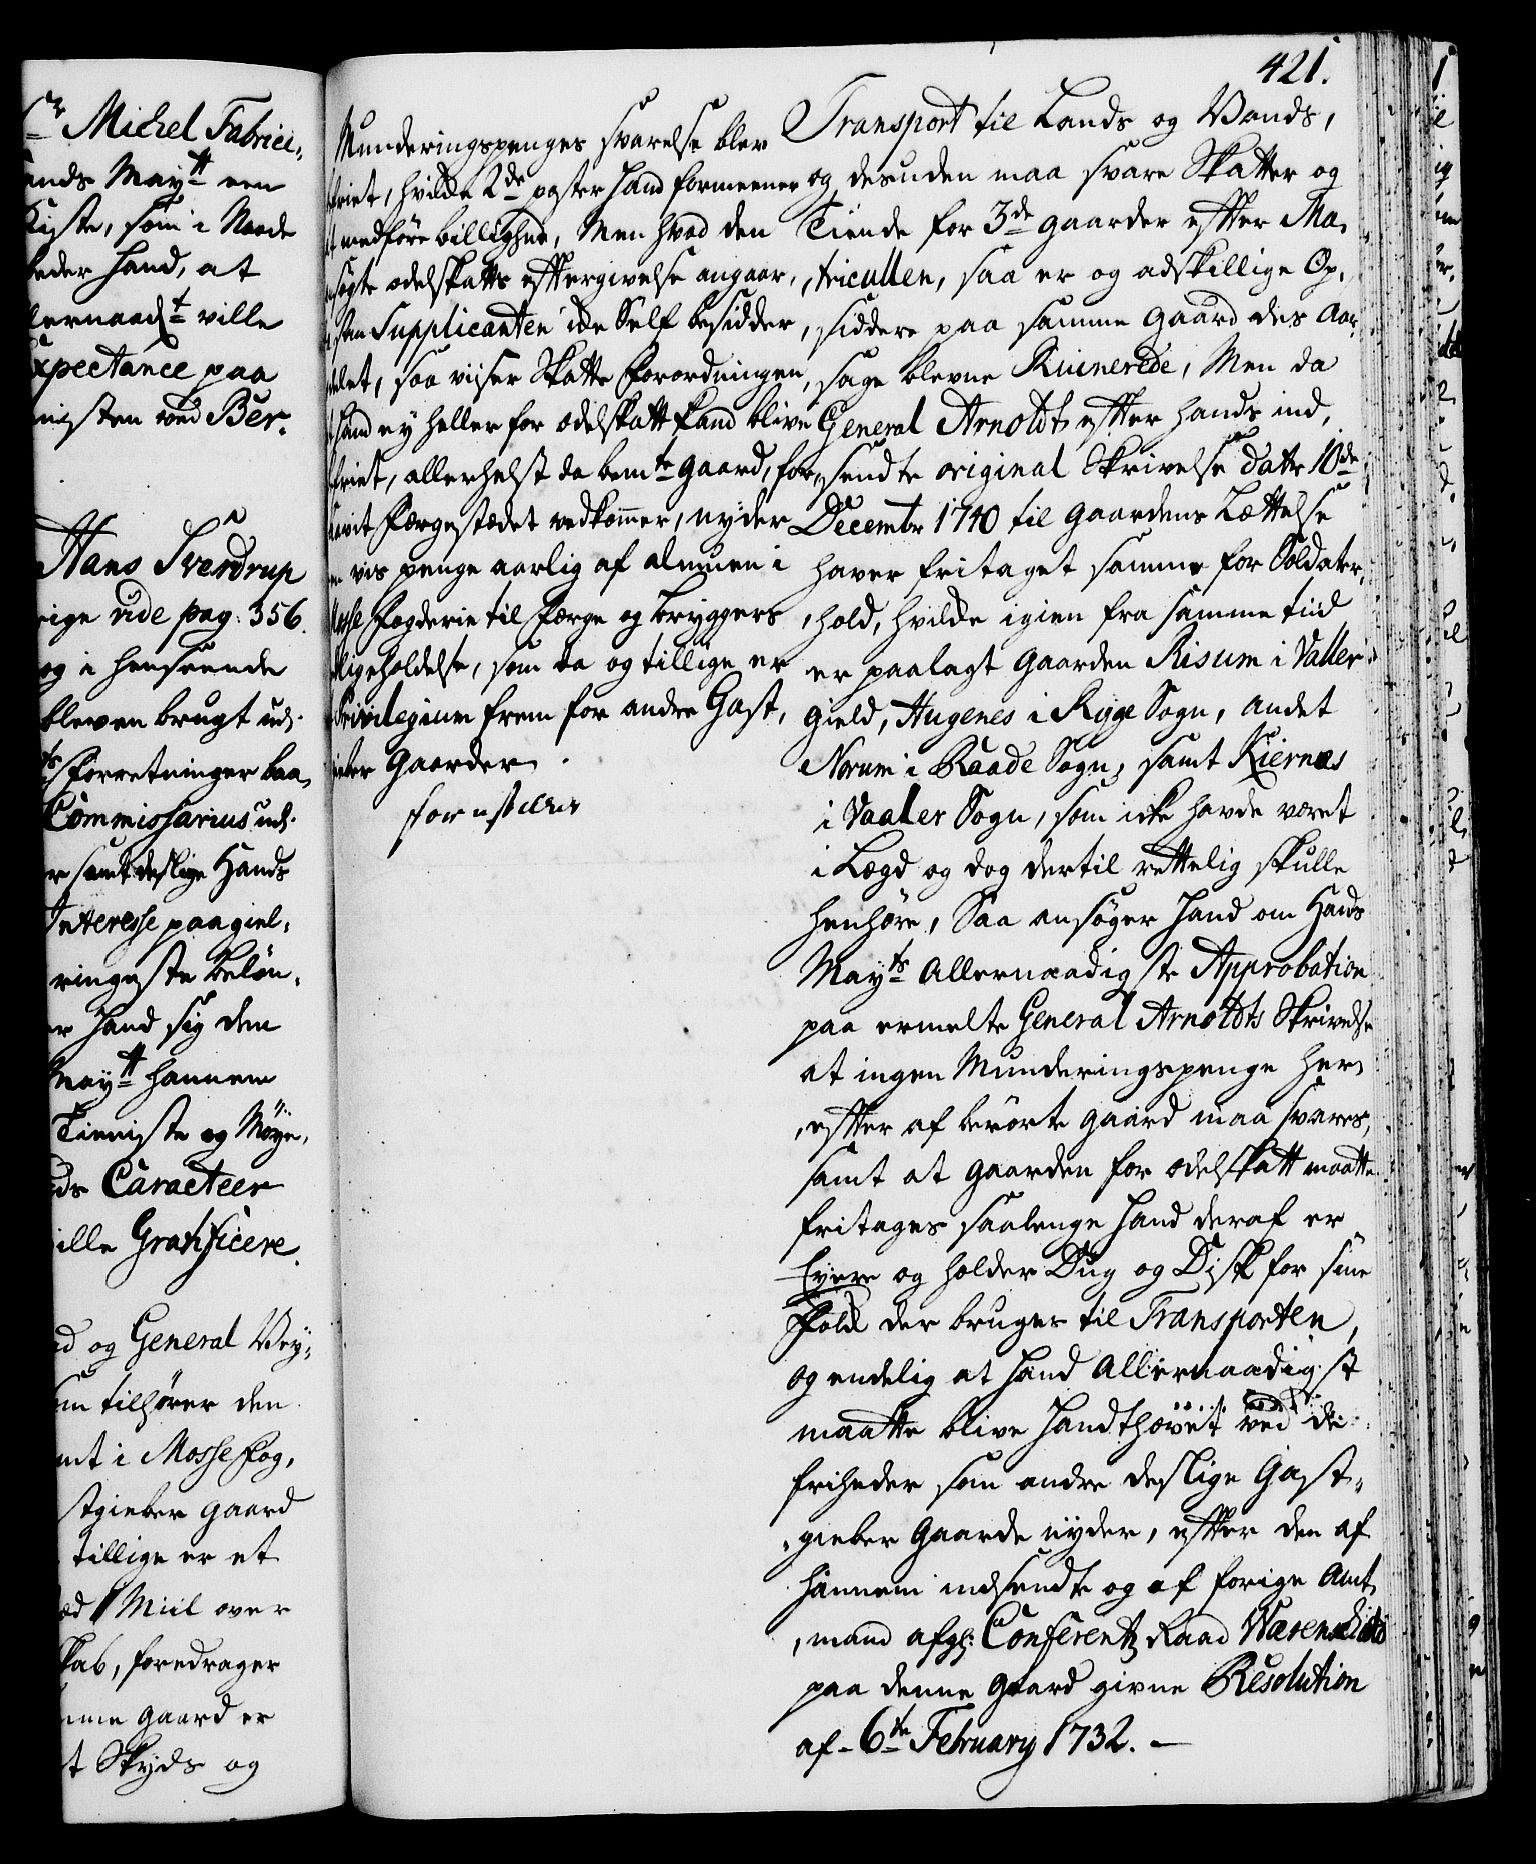 421.
Michel Fabrici-
ands Maytt een
Kiste, som i Naade
beder hand, at
lernaadt ville
Expectance paa
nisten ved Ber-
Hans Sverdrup
rige vide pag: 356.
og i henseende
bleven brugt ud-
Forretninger baa,
Commissarius ud-
r samt deslige Hands
Interesse paagiel,
ringeste belön,
er hand sig dem
Maytt hannem
Tieniste og Möye,
ds Caracteer
ille Gratificere.
d og General Vey,
m tilhörer den
mt i Mosse Fog,
stgieber gaard
tillige er et
1 Miil over
skab, foredrager
mme gaard er
t Skyds og
Munderingspenges svarelse blev
friet, hvilke 2de poster hand formeener
medföre billighed, Men hvad den
sögte odelskatts eftergivelse angaar,
Supplicanten icke Self besidder,
det, saa viiser Skatte Forordningen,
hand ey heller for odelskatt kand blive
friet, allerhelst da bemte gaard, for,
vit Færgestædet vedkommer, nyder
vis penge aarlig af almuen i
Mosse Fogderie til Færge og bryggers
ligeholdelse, som da og tillige er
Privilegium frem for andre Gast,
gieber Gaarder.
Transport til Lands og Vands,
og desuden maa svare Skatter og
Tiende for 3de gaarder efter Ma,
,tricullen, saa er og adskillige Op,
,siddere paa samme gaard des Aar,
,sage blevne Ruinerede, Men da
General Arnoldt efter hands ind,
,sendte original Skrivelse dat: 10de
Decembr 1740 til gaardens Lættelse
haver fritaget samme for Soldater,
,hold, hvilke igien fra samme tiid
er paalagt gaarden Risum i Valler
gield, Augenes i Rygge Sogn, andet
Norum i Raade Sogn, samt Kiernæs
i Vaaler Sogn, som icke havde været
i Lægd og dog dertil rettelig skulle
henhöre, Saa ansöger hand om Hands
Mayts Allernaadigste Approbation
paa ermelte General Arnoldts Skrivelse
at ingen Munderingspenge her,
,efter af berörte gaard maa svares,
samt at gaarden for odelskatt maatte
fritages saalenge hand deraf er
Eyere og holder Dug og Disk for sine
Folk der bruges til Transporten,
og endelig at hand Allernaadigst
maatte blive handthævet ved de
friheder som andre deslige Gast,
,gieber Gaarde nyder, efter den af
hannem indsendte og af forige Amt,
,mand afgl: Conferentz Raad
paa denne Gaard givne Resolution
af 6te February 1732.